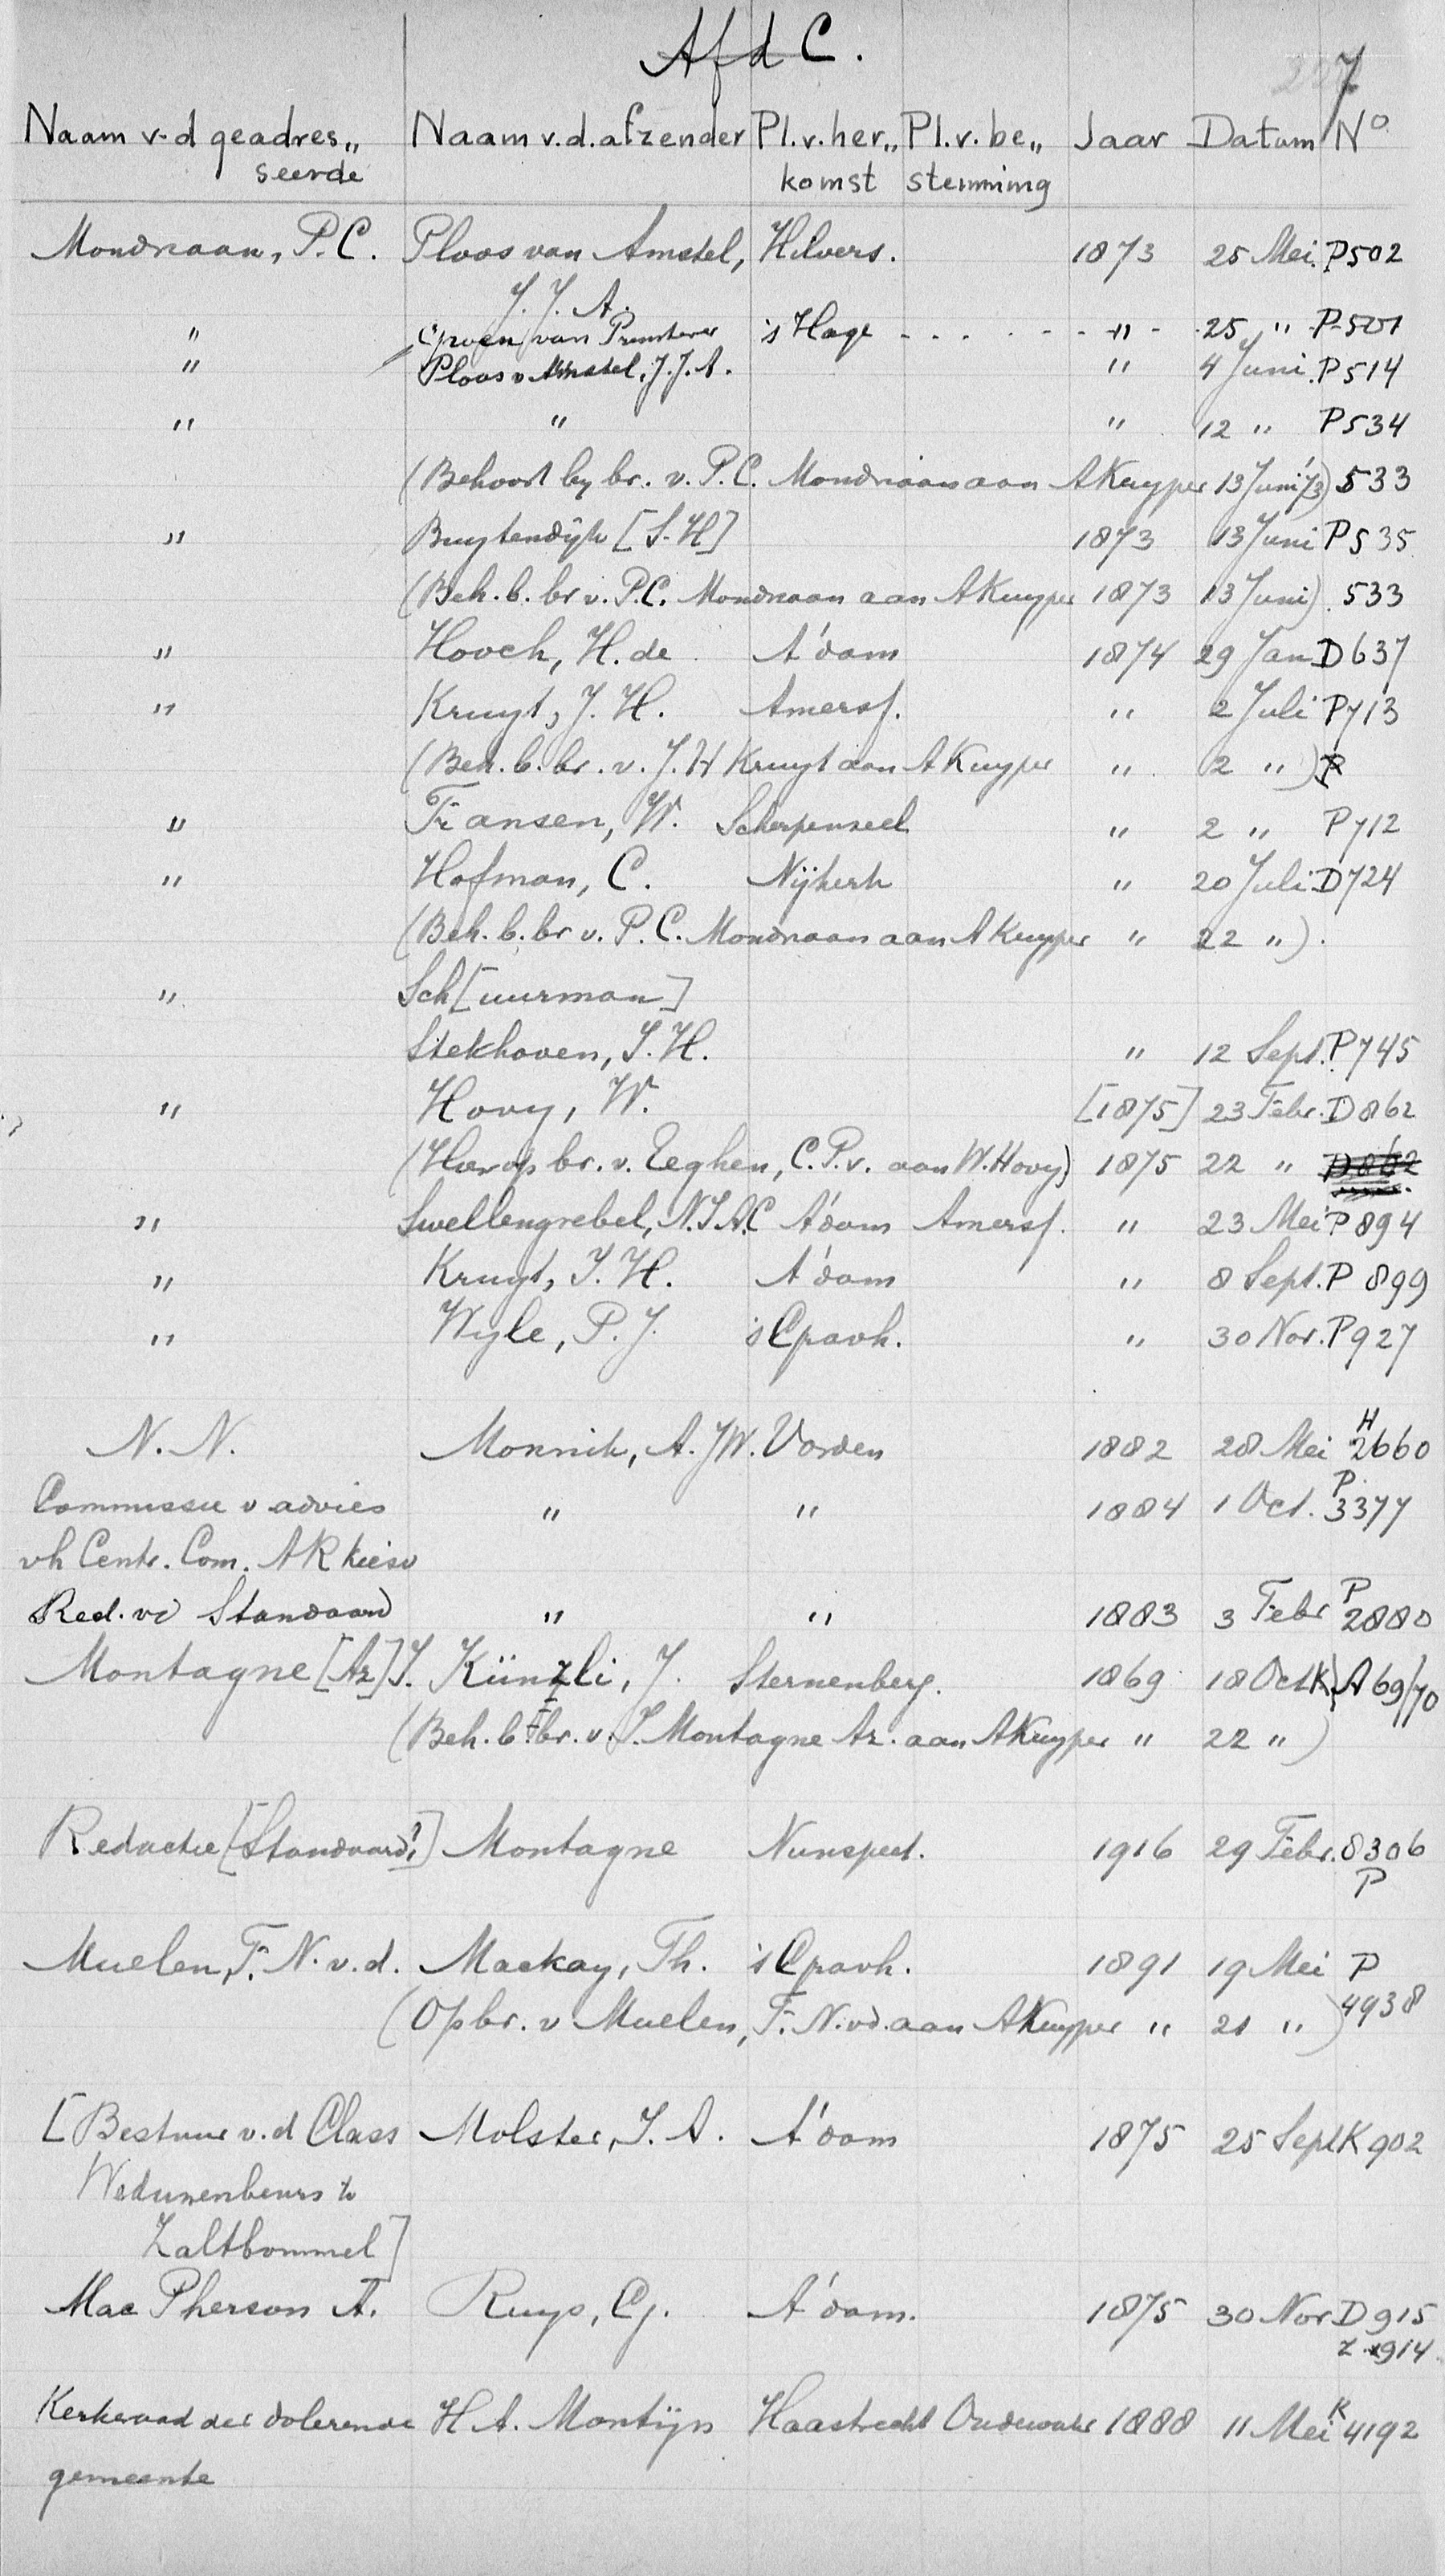 Afd C.
7
Naam v-d geadres„ Naam v.d. afzender Pl. v. her„ Pl. v. be„ Jaar Datum No
seerde komst stemming
Mondriaan, P.C. Ploos van Amstel, Hilvers. 1873 25 Mei. P502
J. J. A.
" Groen van Prinsterer 's Hage - - - - - - " - 25 " P-501
" Ploos v Amstel, J. J. A. " 4 Juni. P514
" " " 12 " P534
(Behoort by br. v. P.C. Mondriaan aan AKuyper 13 Juni '73) 533
" Buytendÿk [S. H] 1873 13 Juni P535
(Beh. b. br v. P.C. Mondriaan aan AKuyper 1873 13 Juni). 533
" Hooch, H. de A'dam 1874 29 Jan D637
" Kruyt, J. H. Amersf. " 2 Juli P713
(Beh. b. br. v. J. H Kruyt aan AKuyper " 2 ") P
" Fransen, W. Scherpenzeel " 2 " P712
" Hofman, C. Nÿkerk " 20 Juli D724
(Beh. b. br v. P. C. Mondriaan aan AKuyper " 22 ").
" Sch[uurman]
Stekhoven, J. H. " 12 Sept. P745
" Hovy, W. [1875] 23 Febr. D862
(Hierop br. v. Eeghen, C. P. v. aan W. Hovy) 1875 22 " D862
" Swellengrebel, N. J. A.C A'dam Amersf. " 23 Mei P894
" Kruyt, J. H. A'dam " 8 Sept. P 899
" Wyle, P. J. 's Gravh. " 30 Nov. P927
N. N. Monnik, A. JW. Vorden 1882 28 Mei H 2660
Commissie v advies " " 1884 1 Oct. P 3377
vh Centr. Com. AR kiesv
Red. vd Standaard " " 1883 3 Febr P 2880
Montagne [Az] J. Künzli, J. Sternenberg. 1869 18 Oct KA 69/70
(Beh. b. br. v. J. Montagne Az. aan AKuyper " 22 ")
Redactie [Standaard?] Montagne Nunspeet. 1916 29 Febr. 8306
P
Muelen, F. N. v. d. Mackay, Th. 's Gravh. 1891 19 Mei P
(Op br. v Muelen, F. N. vd. aan AKuyper " 21 ") 4938
[Bestuur v. d Class Molster, J. A. A'dam 1875 25 Sept K902
Weduwenbeurs te
Zaltbommel]
Mac Pherson A. Ruys, Cj. A'dam. 1875 30 Nov D915
Z 914
Kerkeraad der dolerende H A. Montijn Haastrecht Oudewater 1888 11 Mei K 4192
gemeente